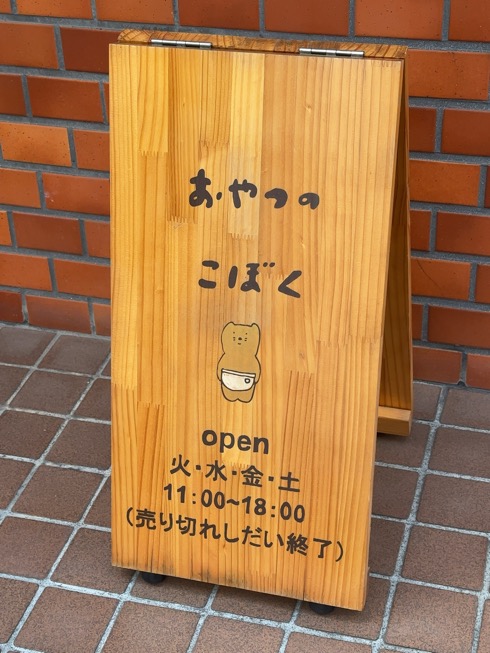 おやつの
こぼく
open
火・水・金・土
11:00~18:00
(売り切れしだい終了)